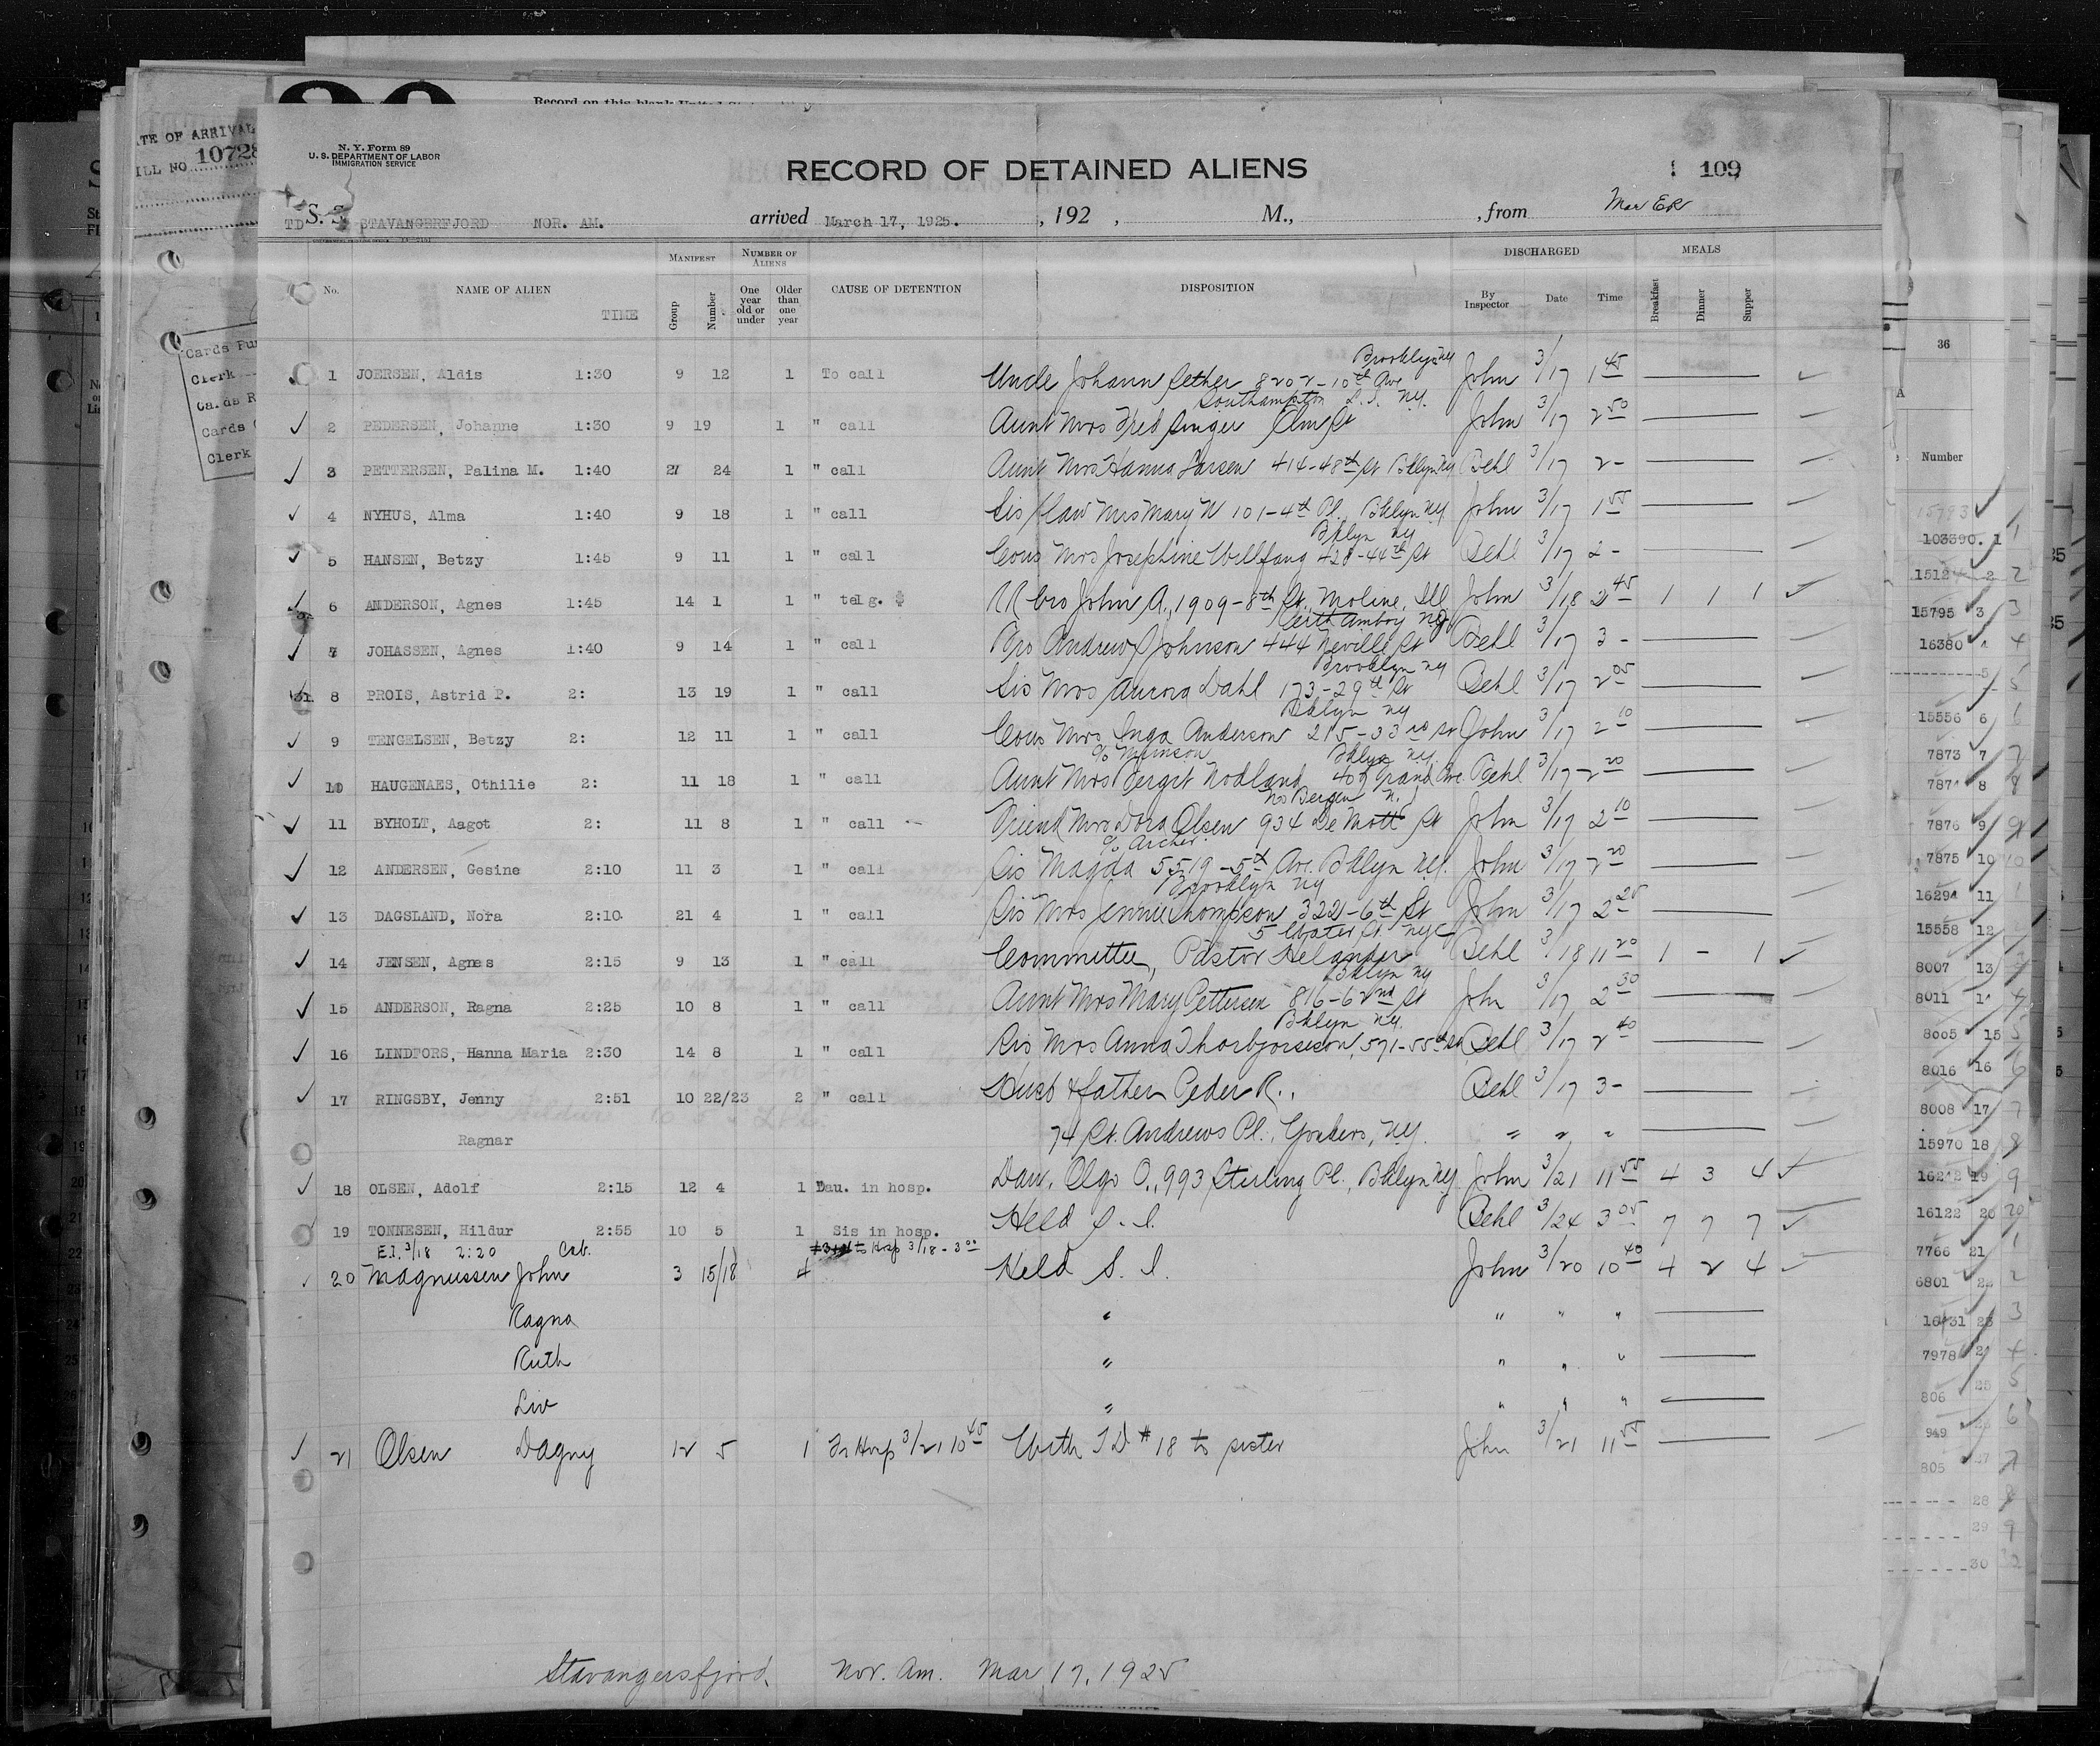 Record on this blank
N. Y. Form 89
U. S. DEPARTMENT OF LABOR
IMMIGRATION SERVICE
RECORD OF DETAINED ALIENS
109
TD S. S. STAVANGERFJORD NOR. AM. arrived March 17, 1925. , 192 , M., , from Mar ER
No. NAME OF ALIEN TIME MANIFEST Group Number NUMBER OF ALIENS One year old or under Older than one year CAUSE OF DETENTION DISPOSITION DISCHARGED By Inspector Date Time MEALS Breakfast Dinner Supper
Brooklyn NY
1 JOERSEN, Aldis 1:30 9 12 1 To call Uncle Johann Sether 8202-10th Ave John 3/17 1 45
Southampton L.I. N.Y.
2 PEDERSEN, Johanne 1:30 9 19 1 " call Aunt Mrs Fred Singer Elm St John 3/17 2 50
3 PETTERSEN, Palina M. 1:40 27 24 1 " call Aunt Mrs Hanna Larsen 414-48th St Bklyn NY Behl 3/17 2-
4 NYHUS, Alma 1:40 9 18 1 " call Sis/law Mrs Mary N 101-4th Pl., Bklyn NY John 3/17 1 55
Bklyn NY
5 HANSEN, Betzy 1:45 9 11 1 " call Cous Mrs Josephine 428-44th St Behl 3/17 2-
6 ANDERSON, Agnes 1:45 14 1 1 " telg. $ RR bro John A., 1909-8th St., Moline, Ill John 3/18 2 45 1 1 1
Perth Amboy NJ
7 JOHASSEN, Agnes 1:40 9 14 1 " call Bro Andrew Johnson 444 Neville St Behl 3/17 3-
Brooklyn NY
8 PROIS, Astrid P. 2: 13 19 1 " call Sis Mrs Aurora Dahl 173-29th St Behl 3/17 2 05
Bklyn NY
9 TENGELSEN, Betzy 2: 12 11 1 " call Cous Mrs Inga Anderson 215-33rd St John 3/17 2 10
Bklyn NY.
10 HAUGENAES, Othilie 2: 11 18 1 " call Aunt Mrs Bergit Nodland 409 Grand Ave Behl 3/17 2 20
No Bergen N.J
11 BYHOLT, Aagot 2: 11 8 1 " call Friend Mrs Dora Olsen 934 De Mott St John 3/17 2 10
c/o Archer
12 ANDERSEN, Gesine 2:10 11 3 1 " call Sis Magda 5519-5th Ave. Bklyn NY. John 3/17 2 20
Brooklyn NY
13 DAGSLAND, Nora 2:10 21 4 1 " call Sis Mrs Jennie Thompson 322-6th St John 3/17 2 25
5 Water St. NYC
14 JENSEN, Agnes 2:15 9 13 1 " call Committee, Pastor Helander Behl 3/18 11 20 1 - 1
Bklyn NY
15 ANDERSON, Ragna 2:25 10 8 1 " call Aunt Mrs Mary Pettersen 816-62nd St John 3/17 2 30
Bklyn NY.
16 LINDTORS, Hanna Maria 2:30 14 8 1 " call Sis Mrs Anna Thorbjornson, 571-55th St Behl 3/17 2 40
17 RINGSBY, Jenny 2:51 10 22/23 2 " call Husb & father Peder R., Behl 3/17 3-
Ragnar 74 St. Andrews Pl., Yonkers, NY. " " "
18 OLSEN, Adolf 2:15 12 4 1 Dau. in hosp. Dau. Olga O., 993 Sterling Pl., Bklyn NY John 3/21 11 55 4 3 4
19 TONNESEN, Hildur 2:55 10 5 1 Sis in hosp. Held S. I. Behl 3/24 3 05 7 7 7
E.I. 3/18 2:20 Cab. to Hosp 3/18-3 00
20 Magnussen John 3 15/18 4 Held S. I. John 3/20 10 40 4 2 4
Ragna " " " "
Ruth " " " "
Liv " " " "
21 Olsen Dagny 12 5 1 Fr Hosp 3/21 10 45 With TD #18 to sister John 3/21 11 55
Stavangersfjord. Nor. Am. Mar 17, 1925